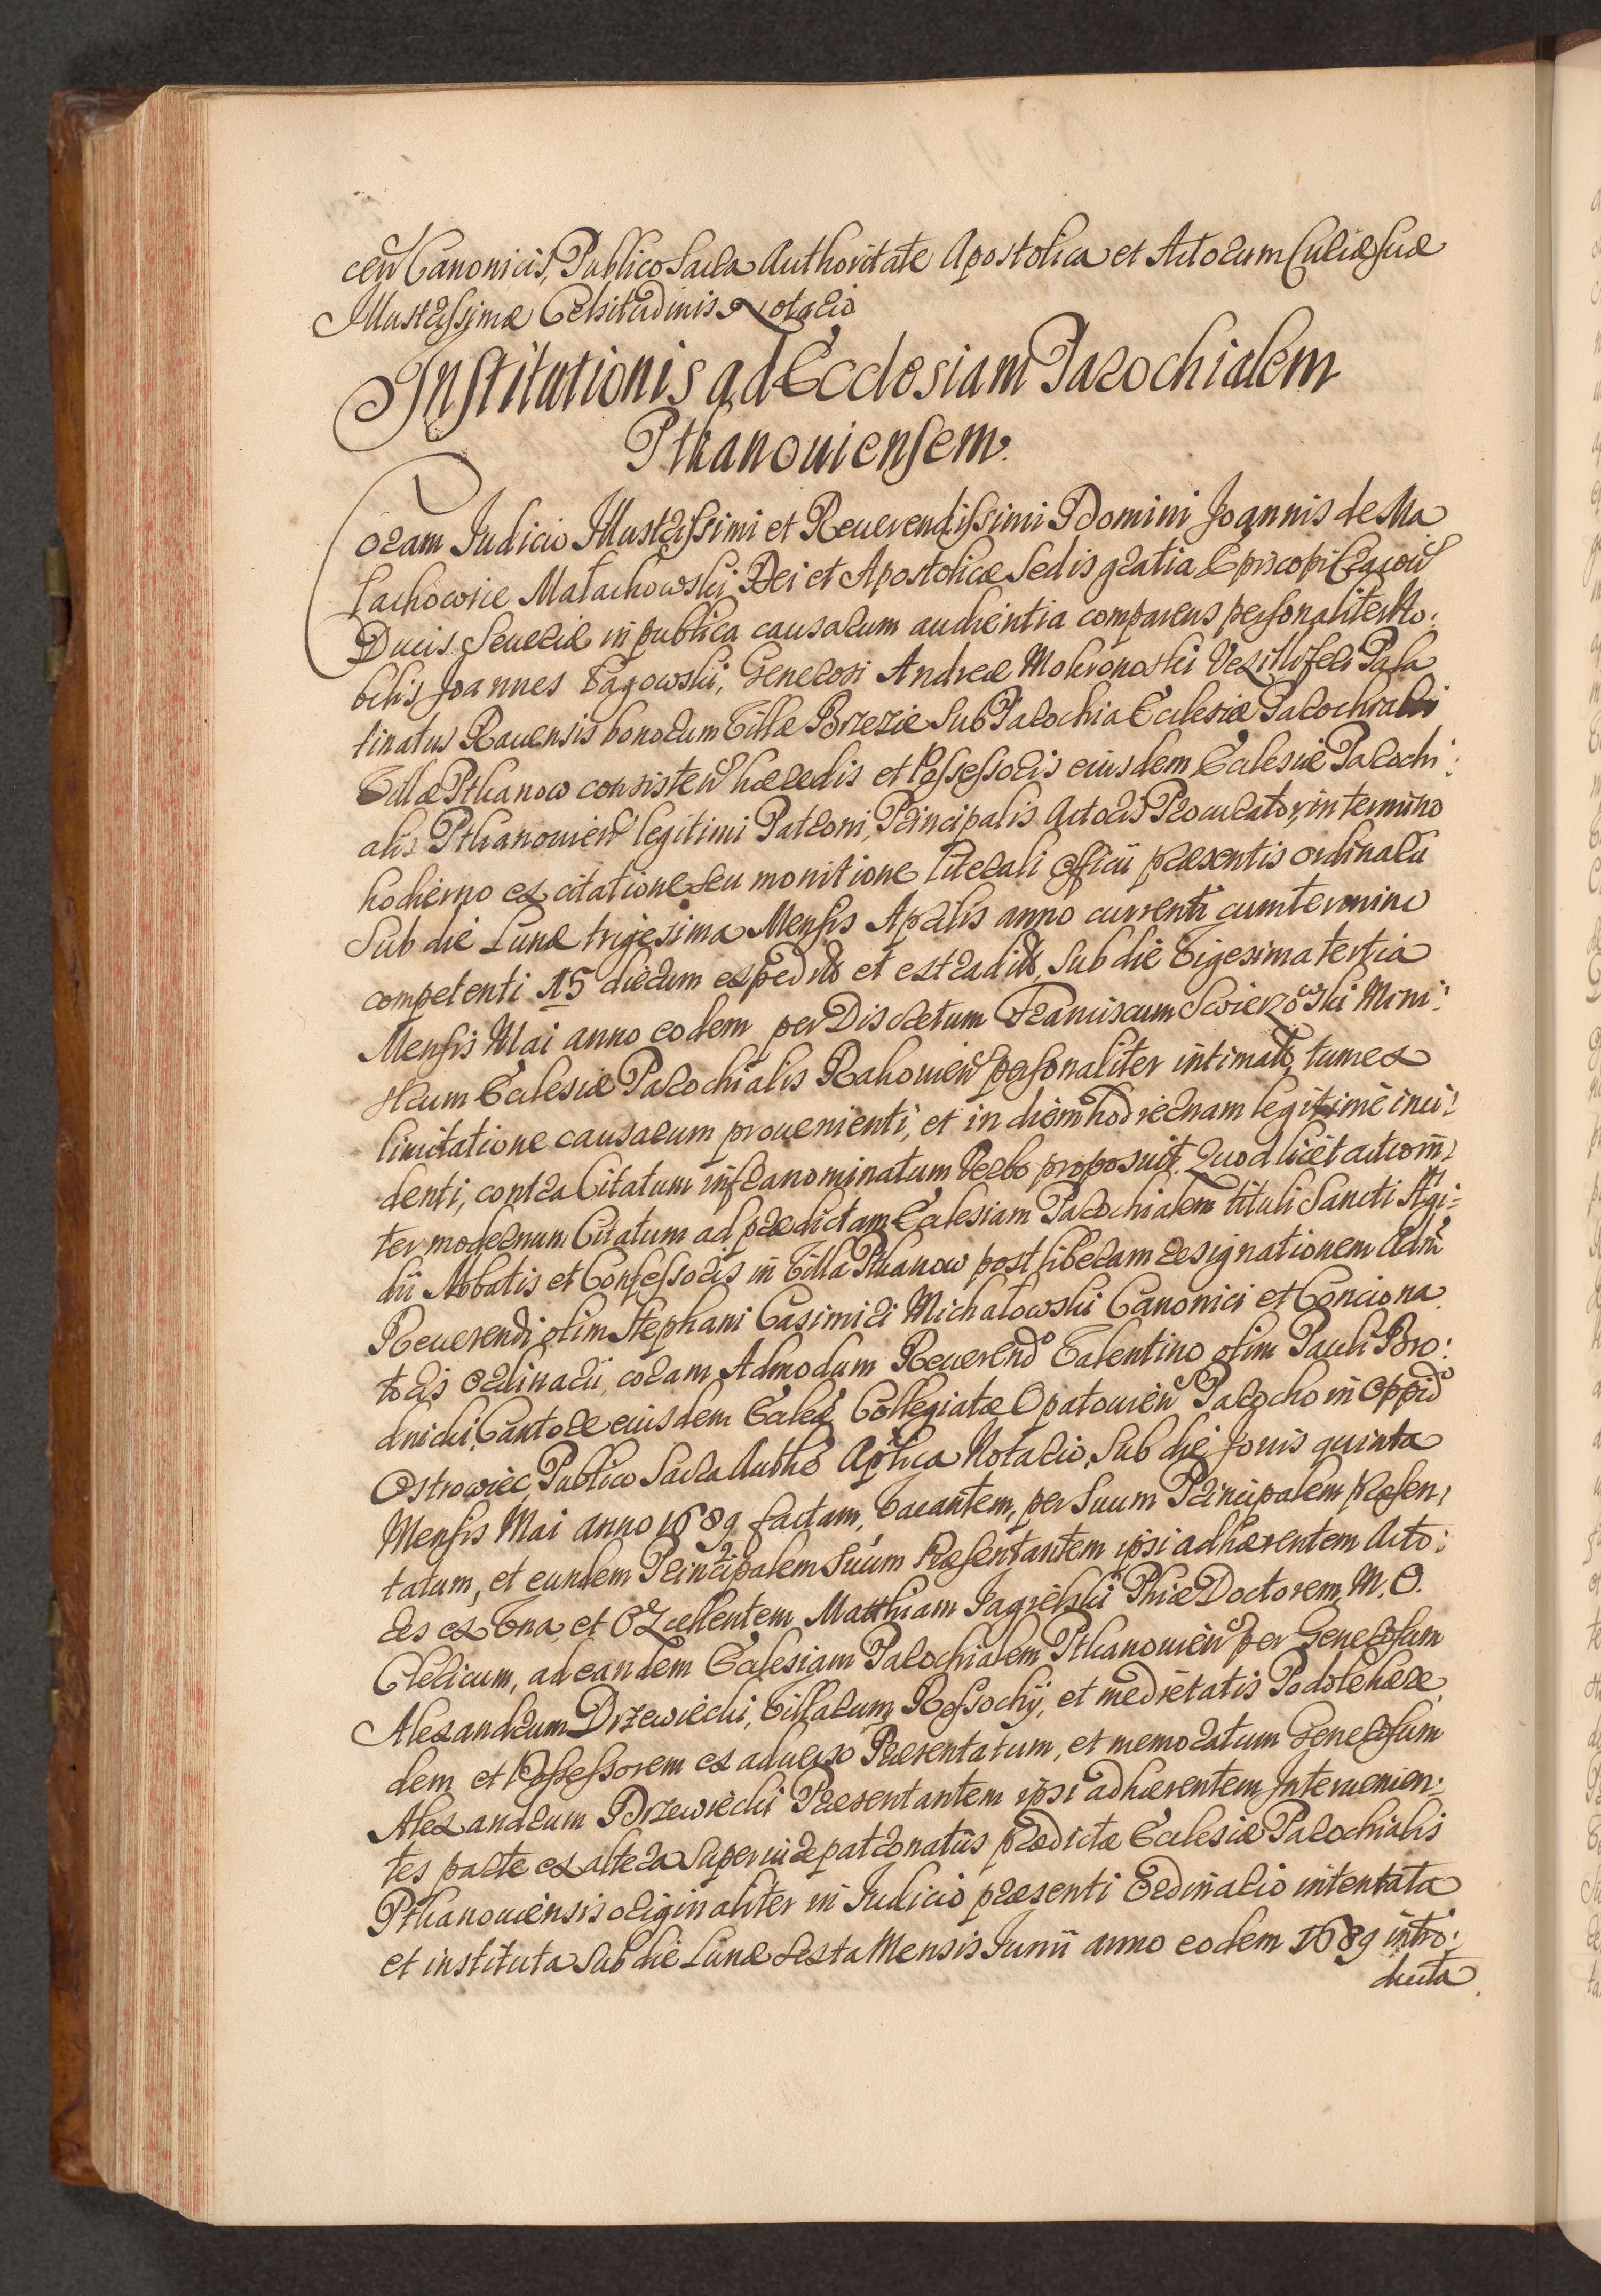 ceñ Canonicis, Publico Sacra Authoritate Apostolica et Actorum Curiæ suæ
Illustrissimæ Celsitudinis Notario
Institutionis ad Ecclesiam Parochialem
Pthanouiensem.
Coram Judicio Illustrissimi et Reuerendissimi Domini Joannis de Ma
lachowice Małachowski Dei et Apostolicæ Sedis gratia Episcopi Cracouiẽ
Ducis Seueriæ in publica causarum audientia comparens personaliter No:
bilis Joannes Łagowski, Generosi Andreæ Mokronoski Vexilliferi Pala
tinatus Rauensis bonorum Villæ Brzezie sub Parochia Ecclesiæ Parochialis
Villæ Pthanow consisteñ hæredis et Possessoris eiusdem Ecclesiæ Parochi:
alis Pthanouieñ legitimi Patroni, Principalis Actoris Procurator, in termino
hodierno ex citatione seu monitione literali officii præsentis ordinarii
Sub die Lunæ trigesima Mensis Aprilis anno currenti cum termino
competenti 15 dierum expedita et extradita, sub die Vigesima tertia
Mensis Mai anno eodem per Discretum Franciscum Swierzowski Mini:
strum Ecclesiæ Parochialis Rakouieñ personaliter intimata, tum ex
limitatione causarum prouenienti, et in diem hodiernam legitimè inci:
denti, contra Citatum infranominatum Verbo proposuit. Quod licet actiom̃:
ter modernum Citatum ad prædictam Ecclesiam Parochialem tituli Sancti Ægi:
dii Abbatis et Confessoris in Villa Pthanow post liberam resignationem Adm̃
Reuerendi olim Stephani Casimiri Michałowski Canonici et Conciona
toris ordinarii, coram Admodum Reuerendo Valentino olim Pauli Bro:
dnicki, Cantore eiusdem Eccleæ Collegiatæ Opatouieñ Parocho in Oppido
Ostrowiec, Publico Sacra Authẽ Aplica Notario, Sub die Jouis quinta
Mensis Mai anno 1689 factam, Vacantem, per Suum Principalem Præsen:
tatum, et eundem Principalem Suum Præsentantem ipsi adhærentem Acto:
res ex Vna, et Excellentem Matthiam Jagielski Phiæ Doctorem, M. O.
Clericum, ad eandem Ecclesiam Parochialem Pthanouieñ per Generosum
Alexandrum Drzewiecki, Villarum Rossochy, et medietatis Podole hære
dem et Possessorem ex aduerso Præsentatum, et memoratum Generosum
Alexandrum Drzewiecki Præsentantem ipsi adhærentem Interuenien:
tes parte ex altera super iure patronatus prædictæ Ecclesiæ Parochialis
Pthanouiensis originaliter in Judicio præsenti Ordinario intentata
et instituta sub die Lunæ sexta Mensis Junii anno eodem 1689 intro:
ducta